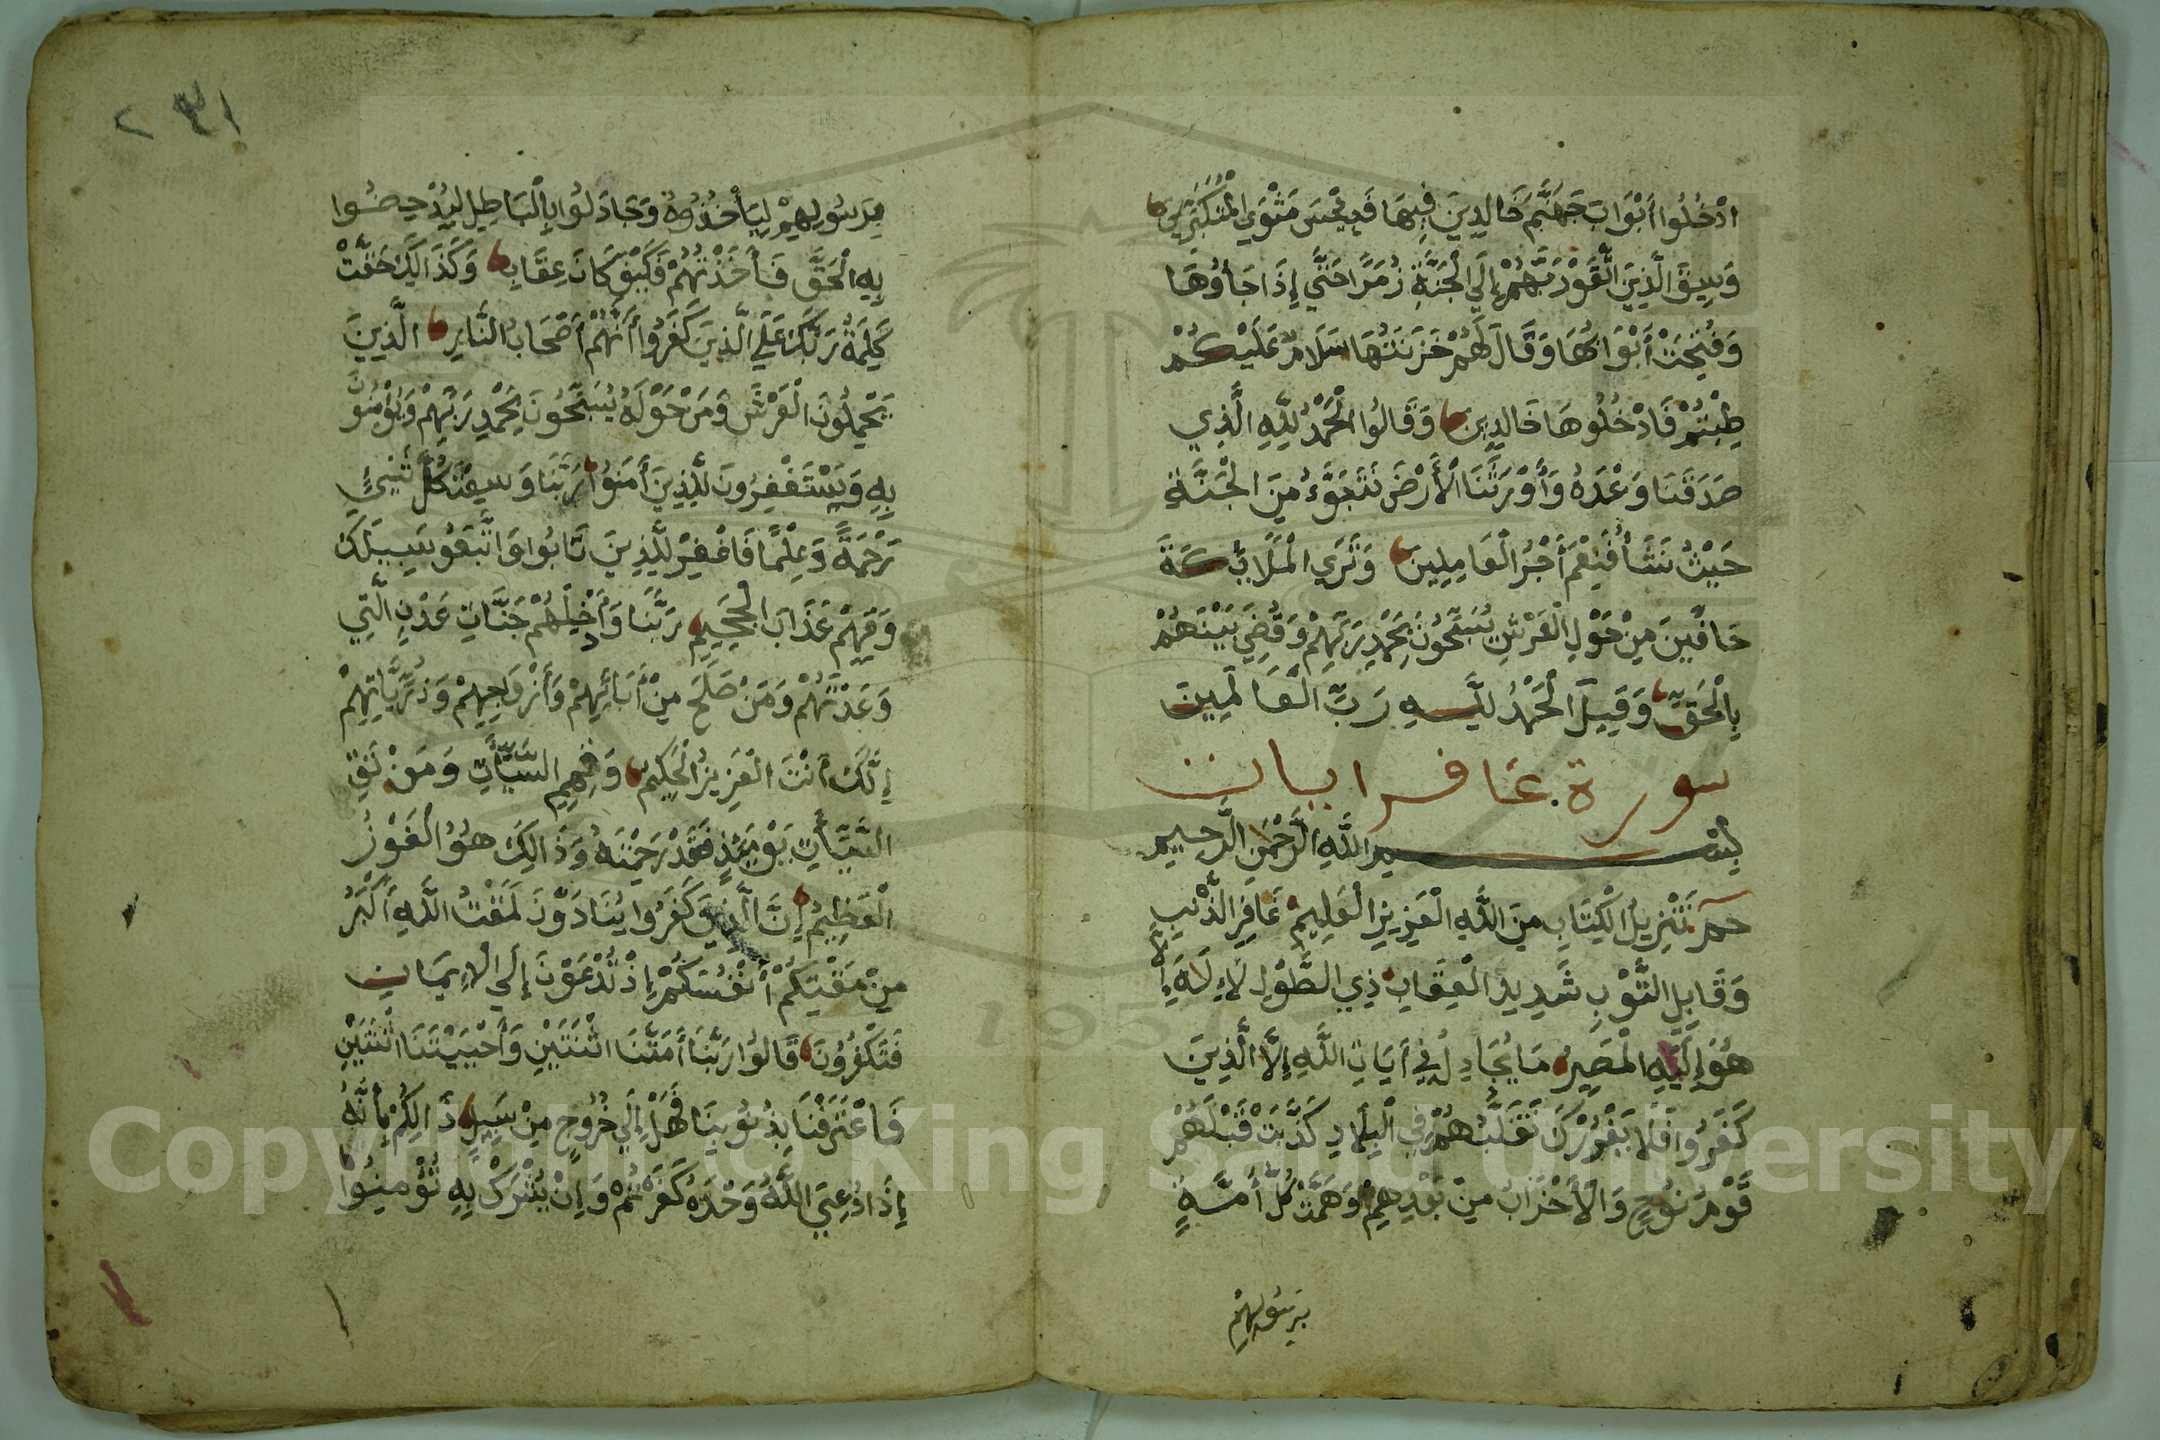 ادْخُلُوا أَبْوَابَ جَهَنَّمَ خَالِدِينَ فِيهَا فَبِئْسَ مَثْوَي الْمُتَكَبِّرِينَ
وَسِيقَ الَّذِينَ اتَّقَوْ رَبَّهُمْ إِلَي الْجَنَّةِ زُمَرًا حَتَّي إِذَا جَاؤُهَا
وَفُتِحَتْ أَبْوَابُهَا وَقَالَ لَهُمْ خَزَنَتُهَا سَلَامٌ عَلَيْكُمْ
طِبْتُمْ فَادْخُلُوهَا خَالِدِينَ وَقَالُوا الْحَمْدُ لِلَّهِ الَّذِي
صَدَقَنَا وَعْدَهُ وَأَوْرَثَنَا الْأَرْضَ نَتَبَوَّءُ مِنَ الْجَنَّةِ
حَيْثُ نَشَأُ فَنِعْمَ أَجْرُ الْعَامِلِينَ وَتَرَي الْمَلَائِكَةَ
حَافِّينَ مِنْ حَوْلِ الْعَرْشِ يُسَبِّحُونَ بِحَمْدِ رَبِّهِمْ وَقُضِيَ بَيْنَهُمْ
بِالْحَقِّ وَقِيلَ الْحَمْدُ لِلَّهِ رَبِّ الْعَالَمِينَ
سورة غافر ايات
بِسْمِ اللَّهِ الرَّحْمَنِ الرَّحِيمِ
حم تَنْزِيلُ الْكِتَابِ مِنَ اللَّهِ الْعَزِيزِ الْعَلِيمِ غَافِرِ الذَّنْبِ
وَقَابِلِ التَّوْبِ شَدِيدِ الْعِقَابِ ذِي الطَّوْلِ لَا إِلَهَ إِلَّا
هُوَ إِلَيْهِ الْمَصِيرُ مَا يُجَادِلُ فِي أَيَاتِ اللَّهِ إِلَّا الَّذِينَ
كَفَرُوا فَلَا يَغْرُرْكَ تَقَلُّبُهُمْ فِي الْبِلَادِ كَذَّبَتْ قَبْلَهُمْ
قَوْمُ نُوحٍ وَالْأَحْزَابُ مِنْ بَعْدِهِمْ وَهَمَّتْ كُلُّ أُمَّةٍ
بِرَسُولِهِمْ
٢٣١
بِرَسُولِهِمْ لِيَأْخُذُوهُ وَجَادَلُوا بِالْبَاطِلِ لِيُدْحِضُوا
بِهِ الْحَقَّ فَأَخَذْتُهُمْ فَكَيْفَ كَانَ عِقَابِ وَكَذَالِكَ حَقَّتْ
كَلِمَةُ رَبِّكَ عَلَي الَّذِينَ كَفَرُوا أَنَّهُمْ أَصْحَابُ النَّارِ الَّذِينَ
يَحْمِلُونَ الْعَرْشَ وَمَنْ حَوْلَهُ يُسَبِّحُونَ بِحَمْدِ رَبِّهِمْ وَيُؤْمِنُونَ
بِهِ وَيَسْتَغْفِرُونَ لِلَّذِينَ أَمَنُوا رَبَّنَا وَسِعْتَ كُلَّ شَيْئٍ
رَحْمَةً وَعِلْمًا فَاغْفِرْ لِلَّذِينَ تَابُوا وَاتَّبَعُو سَبِيلَكَ
وَقِهِمْ عَذَابَ الْجَحِيمِ رَبَّنَا وَأَدْخِلْهُمْ جَنَّاتِ عَدْنٍ الَّتِي
وَعَدْتَهُمْ وَمَنْ صَلَحَ مِنْ أَبَائِهِمْ وَأَزْوَاجِهِمْ وَذُرِّيَّاتِهِمْ
إِنَّكَ أَنْتَ الْعَزِيزُ الْحَكِيمُ وَقِهِمِ السَّيِّأَتِ وَمَنْ تَقِ
السَّيِّأَتِ يَوْمَئِذٍ فَقَدْ رَحِمْتَهُ وَذَالِكَ هُوَ الْفَوْزُ
الْعَظِيمُ إِنَّ الَّذِينَ كَفَرُوا يُنَادَوْنَ لَمَقْتُ اللَّهِ أَكْبَرُ
مِنْ مَقْتِكُمْ أَنْفُسَكُمْ إِذْ تُدْعَوْنَ إِلَي الْإِيمَانِ
فَتَكْفُرُونَ قَالُوا رَبَّنَا أَمَتَّنَا اثْنَتَيْنِ وَأَحْيَيْتَنَا اثْنَتَيْنِ
فَاعْتَرَفْنَا بِذُنُوبِنَا فَهَلْ إِلَي خُرُوجٍ مِنْ سَبِيلٍ ذَالِكُمْ بِأَنَّهُ
إِذَا دُعِيَ اللَّهُ وَحْدَهُ كَفَرْتُمْ وَإِنْ يُشْرَكْ بِهِ تُؤْمِنُوا
Copyright © King Saud University
1957